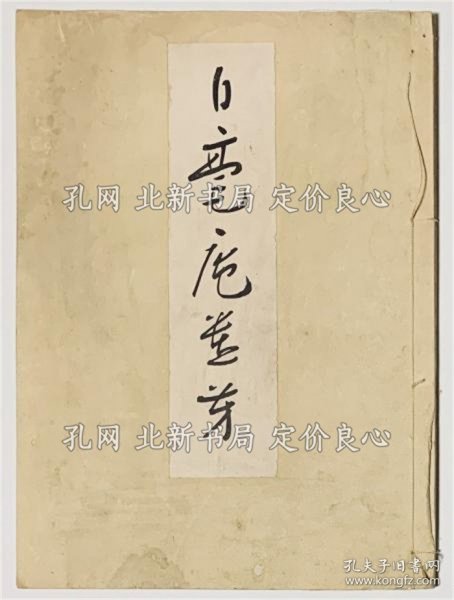 白毫庵
孔网 北新书局 定价良心
孔网 北新书局 定价良心
孔夫子旧书网
www.kongfz.com